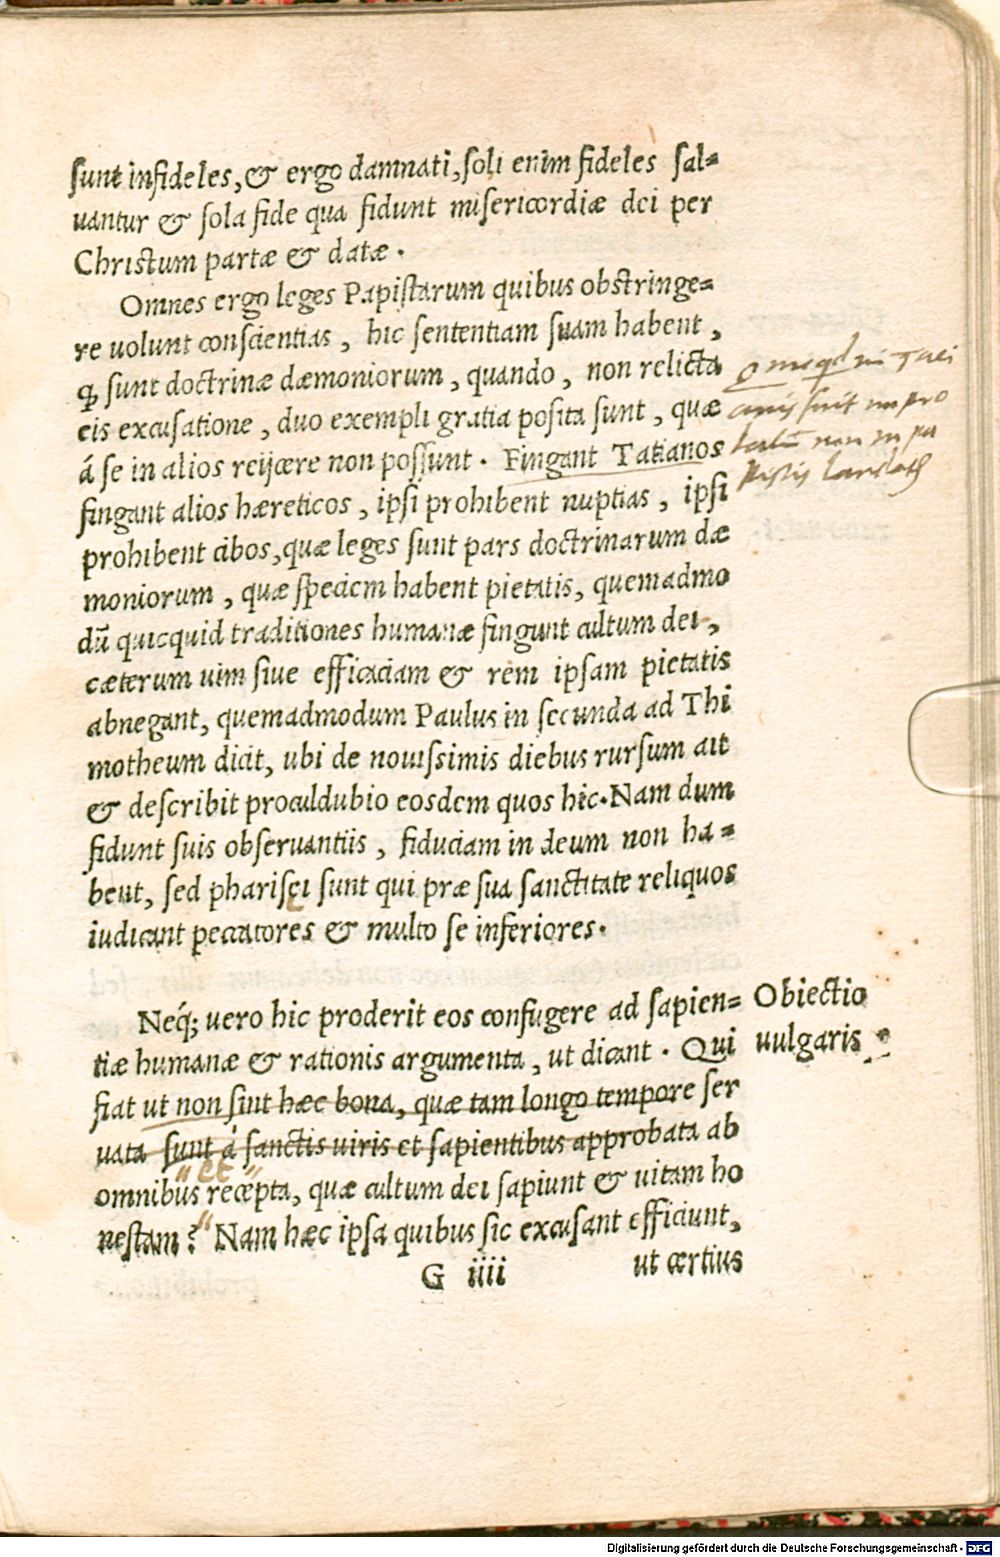 sunt infideles, & ergo damnati, soli enim fideles sal=
uantur & sola fide qua fidunt misericordiæ dei per
Christum partæ & datæ.
Omnes ergo leges Papistarum quibus obstringe=
re uolunt conscientias, hic sententiam suam habent,
ꝙ sunt doctrinæ dæmoniorum, quando, non relicta
eis excusatione, duo exempli gratia posita sunt, quæ
á se in alios reijcere non possunt. Fingant Tatianos
fingant alios hæreticos, ipsi prohibent nuptias, ipsi
prohibent cibos, quæ leges sunt pars doctrinarum dæ
moniorum, quæ speciem habent pietatis, quemadmo
dū quicquid traditiones humanæ fingunt cultum dei,
cæterum uim siue efficaciam & rem ipsam pietatis
abnegant, quemadmodum Paulus in secunda ad Thi
motheum dicit, ubi de nouissimis diebus rursum ait
& describit proculdubio eosdem quos hic. Nam dum
fidunt suis obseruantiis, fiduciam in deum non ha=
bent, sed pharisęi sunt qui præ sua sanctitate reliquos
iudicant peccatores & multo se inferiores.
Neq́; uero hic proderit eos confugere ad sapien=
tiæ humanæ & rationis argumenta, ut dicant. Qui
fiat ut non sint hæc bona, quæ tam longo tempore ser
uata sunt á sanctis uiris et sapientibus approbata ab
et
omnibus recepta, quæ cultum dei sapiunt & uitam ho
nestam? Nam hæc ipsa quibus sic excusant efficiunt,
G iiii ut certius
in
fuit
non in
Obiectio
uulgaris
Digitalisierung gefördert durch die Deutsche Forschungsgemeinschaft - DFG